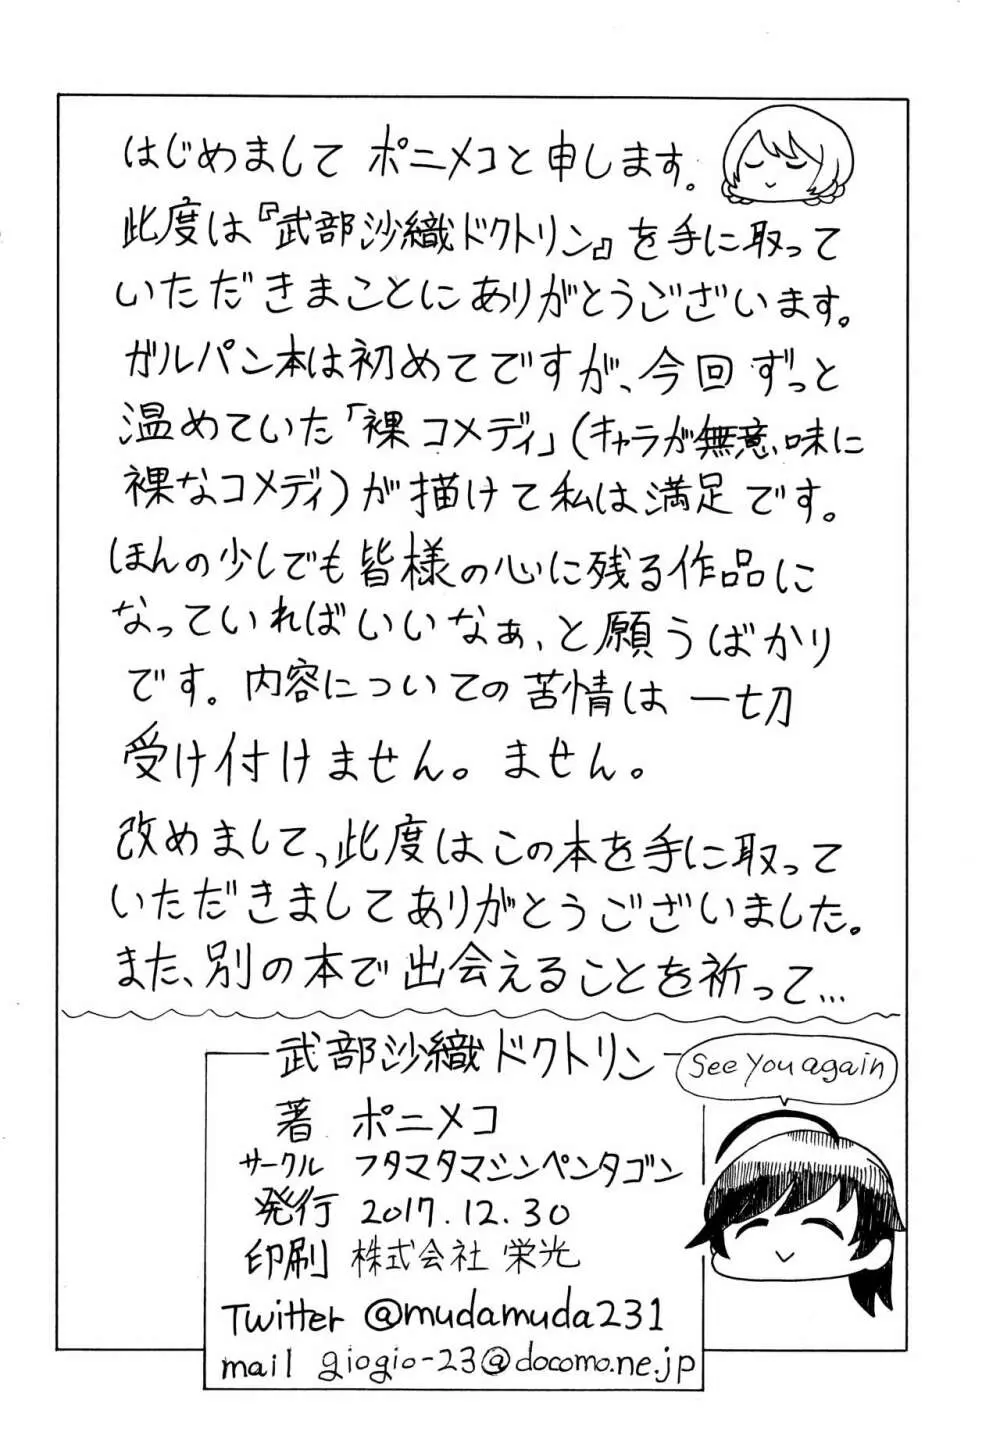 はじめまして ポニメコと申します。
此度は『武部沙織ドクトリン』を手に取って
いただきまことにありがとうございます。
ガルパン本は初めてですが、今回ずっと
温めていた「裸コメディ」(キャラが無意味に
裸なコメディ)が描けて私は満足です。
ほんの少しでも皆様の心に残る作品に
なっていればいいなぁ、と願うばかり
です。内容についての苦情は 一切
受け付けません。ません。
改めまして、此度はこの本を手に取って
いただきましてありがとうございました。
また、別の本で出会えることを祈って…
武部沙織ドクトリン
See you again
著 ポニメコ
サークル フタマタマシンペンタゴン
発行 2017.12.30
印刷 株式会社 栄光
Twitter @mudamuda231
mail giogio-23@docomo.ne.jp